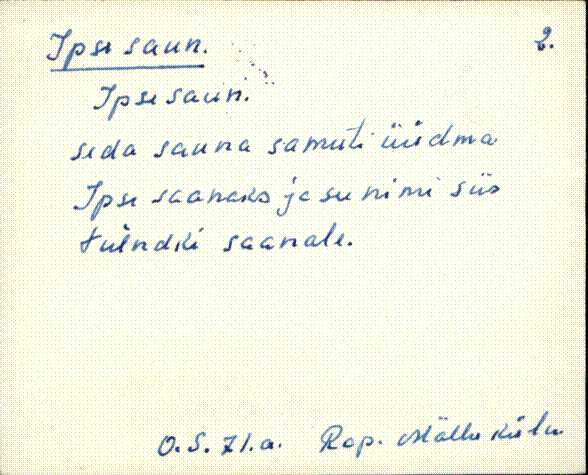 Ipse saun.
2.
Ipse saun.
seda sauna samuti üüdma
Ipse saanaks ja see nimi siis
tulndki saanale.
O.S. 71.a. Rap. Mällu küla